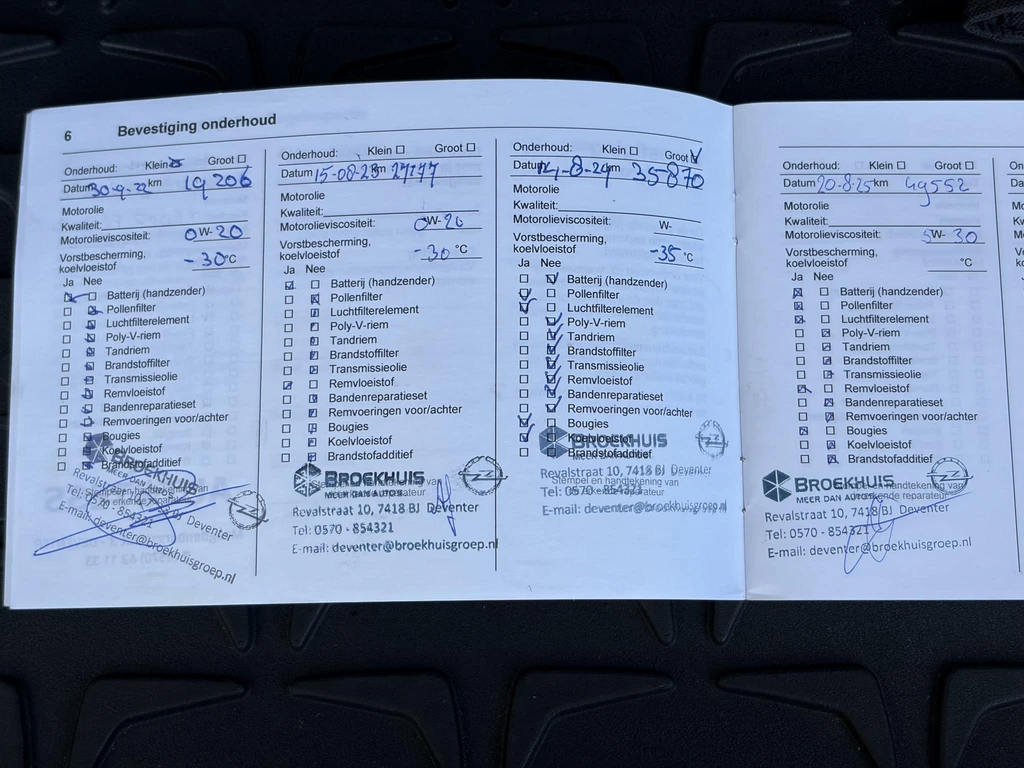 6 Bevestiging onderhoud
Onderhoud: Klein Groot
Datum 30-9-22 km 19206
Motorolie
Kwaliteit:
Motorolieviscositeit: 0W-20
Vorstbescherming,
koelvloeistof -30 °C
Ja Nee
Batterij (handzender)
Pollenfilter
Luchtfilterelement
Poly-V-riem
Tandriem
Brandstoffilter
Transmissieolie
Remvloeistof
Bandenreparatieset
Remvoeringen voor/achter
Bougies
Koelvloeistof
Brandstofadditief
BROEKHUIS
MEER DAN AUTO'S
Deventer
Tel: 0570 - 854321
E-mail: deventer@broekhuisgroep.nl
Onderhoud: Klein Groot
Datum 15-08-23 km 27177
Motorolie
Kwaliteit:
Motorolieviscositeit: 0W-20
Vorstbescherming,
koelvloeistof -30 °C
Ja Nee
Batterij (handzender)
Pollenfilter
Luchtfilterelement
Poly-V-riem
Tandriem
Brandstoffilter
Transmissieolie
Remvloeistof
Bandenreparatieset
Remvoeringen voor/achter
Bougies
Koelvloeistof
Brandstofadditief
BROEKHUIS
MEER DAN AUTO'S
Revalstraat 10, 7418 BJ Deventer
Tel: 0570 - 854321
E-mail: deventer@broekhuisgroep.nl
Onderhoud: Klein Groot
Datum 14-8-24 km 35870
Motorolie
Kwaliteit:
Motorolieviscositeit: W-
Vorstbescherming,
koelvloeistof -35 °C
Ja Nee
Batterij (handzender)
Pollenfilter
Luchtfilterelement
Poly-V-riem
Tandriem
Brandstoffilter
Transmissieolie
Remvloeistof
Bandenreparatieset
Remvoeringen voor/achter
Bougies
Koelvloeistof
Brandstofadditief
BROEKHUIS
Revalstraat 10, 7418 BJ Deventer
Stempel en handtekening
Tel: 0570 - 854321
E-mail: deventer@broekhuisgroep.nl
Onderhoud: Klein Groot
Datum 20-8-25 km 49552
Motorolie
Kwaliteit:
Motorolieviscositeit: 5W-30
Vorstbescherming,
koelvloeistof °C
Ja Nee
Batterij (handzender)
Pollenfilter
Luchtfilterelement
Poly-V-riem
Tandriem
Brandstoffilter
Transmissieolie
Remvloeistof
Bandenreparatieset
Remvoeringen voor/achter
Bougies
Koelvloeistof
Brandstofadditief
BROEKHUIS
MEER DAN AUTO'S
Revalstraat 10, 7418 BJ Deventer
Tel: 0570 - 854321
E-mail: deventer@broekhuisgroep.nl